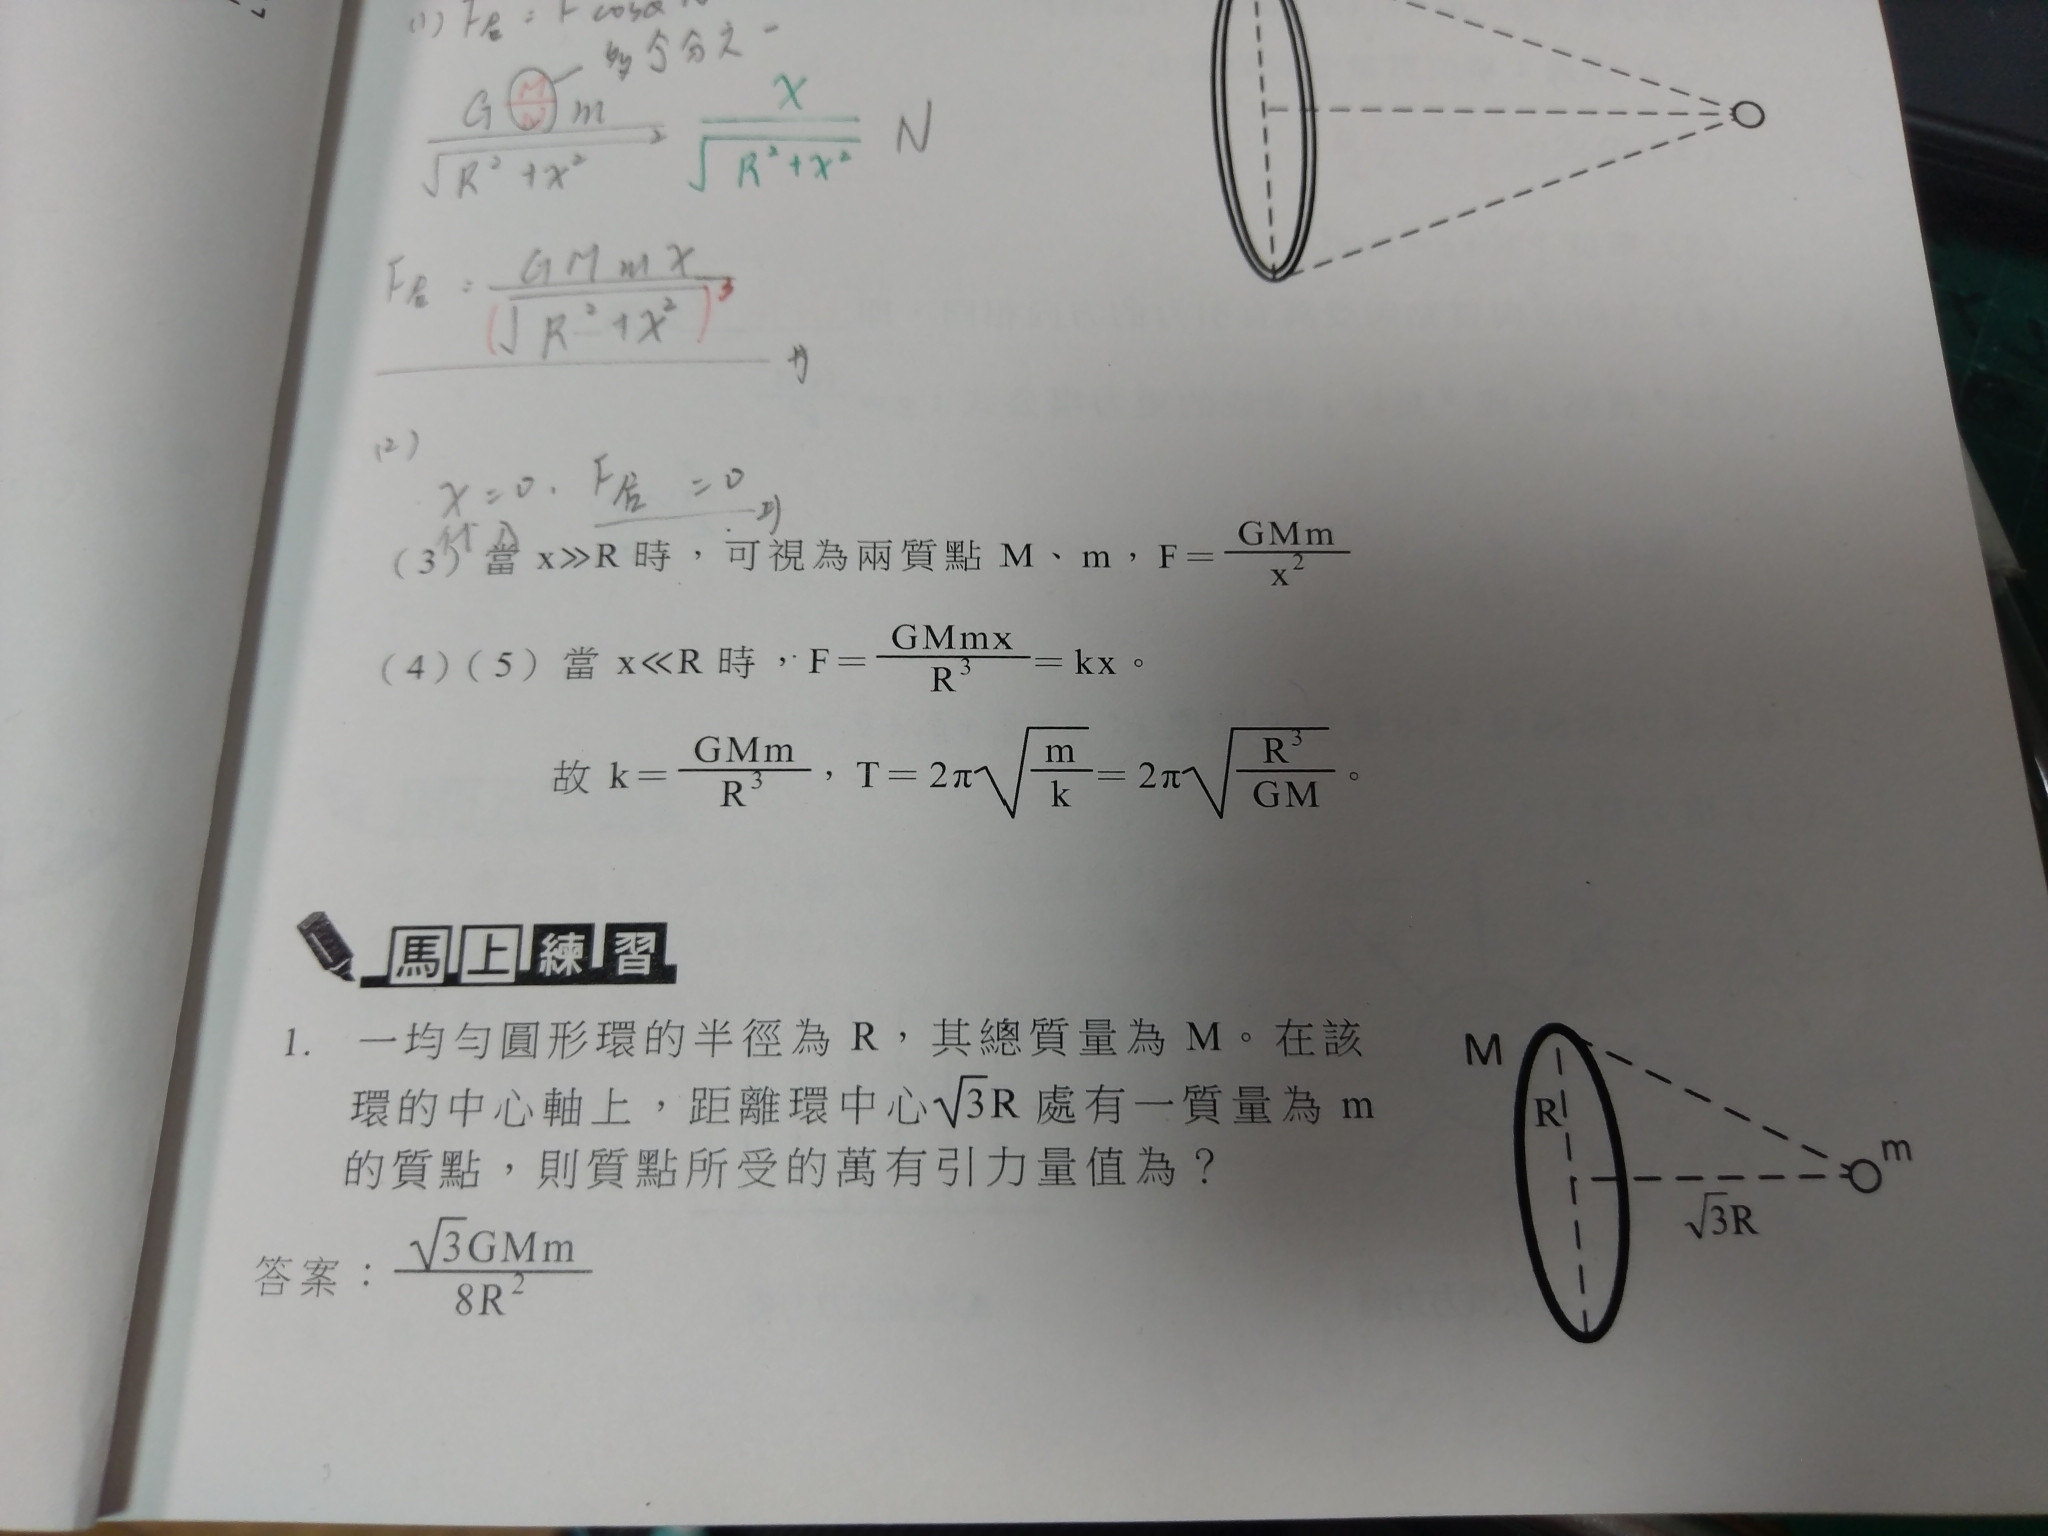 (1) F合 = F cosα N
G M/N m / √R²+x² ² x / √R²+x² N
F合 = GMmx / (√R²+x²)³
(2)
x=0. F合 =0
代入
(3) 當 x≫R 時，可視為兩質點 M、m，F＝GMm/x²
(4)(5) 當 x≪R 時，F＝GMmx/R³＝kx。
故 k＝GMm/R³，T＝2π√(m/k)＝2π√(R³/GM)。
馬上練習
1. 一均勻圓形環的半徑為 R，其總質量為 M。在該
環的中心軸上，距離環中心√3R 處有一質量為 m
的質點，則質點所受的萬有引力量值為？
答案：√3GMm/8R²
M
R
m
√3R